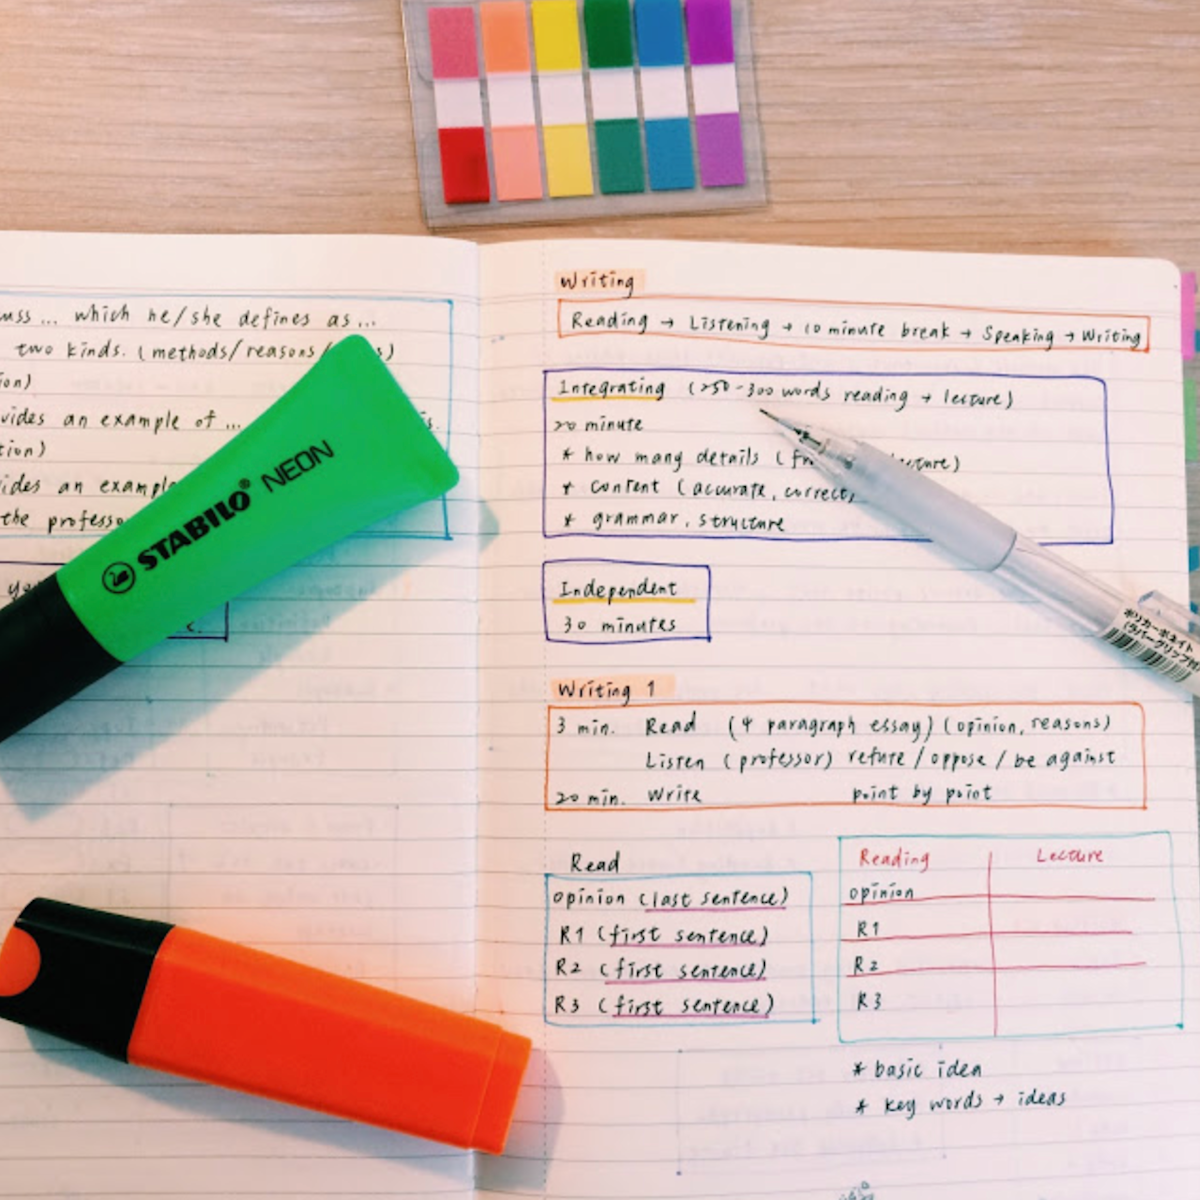 uss ... which he/she defines as ...
two kinds. (methods/reasons/
ion)
vides an example of ...
tion)
ides an example
the professo
STABILO® NEON
Writing
Reading → Listening → 10 minute break → Speaking → Writing
Integrating (250-300 words reading → lecture)
20 minute
* how many details ( lecture)
* content (accurate, correct,
* grammar, structure
Independent
30 minutes
ポリカーボネイト
(ラバーグリップ付
Writing 1
3 min. Read (4 paragraph essay) (opinion, reasons)
Listen (professor) refute / oppose / be against
20 min. Write point by point
Read
opinion (last sentence)
R1 (first sentence)
R2 (first sentence)
R3 (first sentence)
Reading Lecture
opinion
R1
R2
R3
* basic idea
* key words → ideas